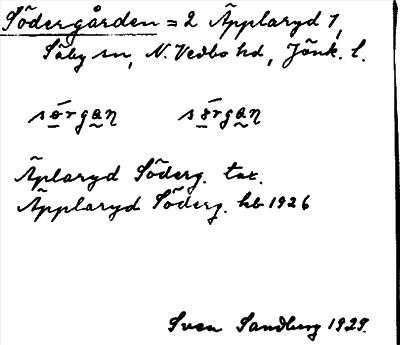 Södergården = 2 Äpplaryd 1,
Säby sn, N. Vedbo hd, Jönk. l.
sørgan sørgan
Äplaryd Söderg. tax.
Äpplaryd Söderg. hb 1926
Sven Sandberg 1929.